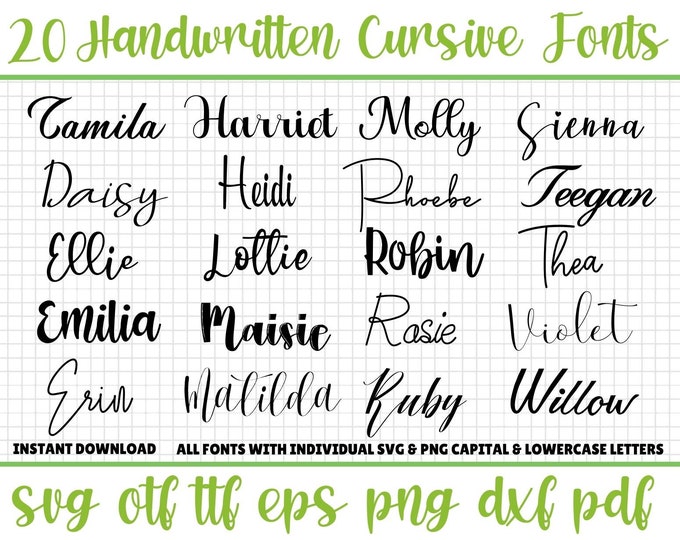 20 Handwritten Cursive Fonts
Camila Harriet Molly Sienna
Daisy Heidi Phoebe Teegan
Ellie Lottie Robin Thea
Emilia Maisie Rosie Violet
Erin Matilda Ruby Willow
INSTANT DOWNLOAD ALL FONTS WITH INDIVIDUAL SVG & PNG CAPITAL & LOWERCASE LETTERS
svg otf ttf eps png dxf pdf